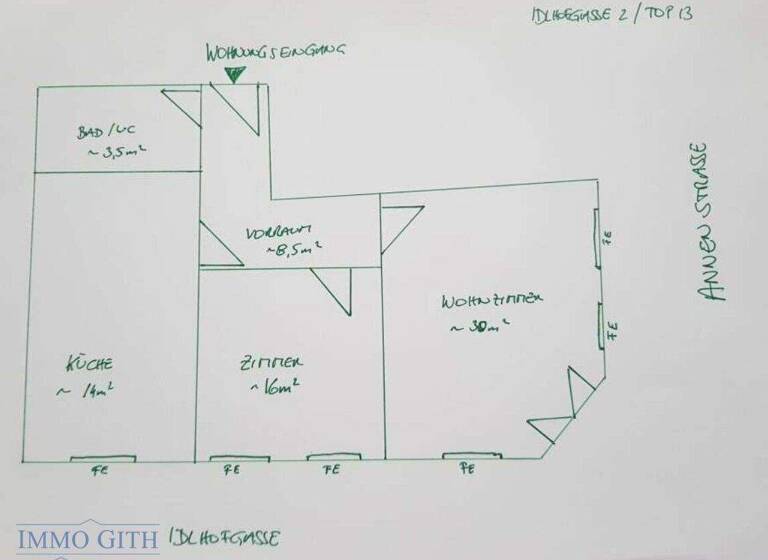 IDLHOFGASSE 2 / TOP 13
WOHNUNGSEINGANG
BAD/WC
~ 3,5m²
VORRAUM
~ 8,5m²
ANNENSTRASSE
FE
WOHNZIMMER
~ 30m²
FE
KÜCHE
~ 14m²
ZIMMER
~ 16m²
FE
FE
FE
FE
IMMO GITH
IDLHOFGASSE